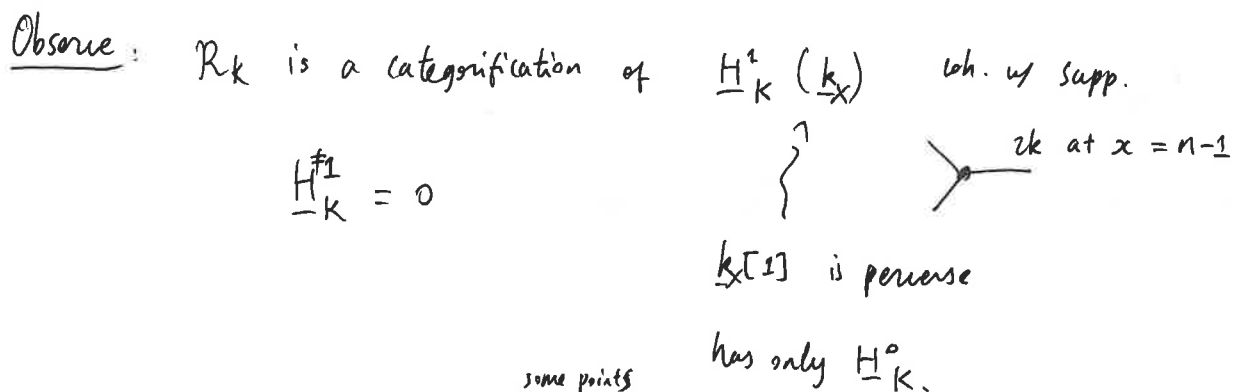 Observe: R_K is a categorification of H^1_K (k_X) coh. w/ supp.
rk at x = n-1
H^{≠1}_K = 0
k_X[1] is perverse
has only H^0_K.
some points